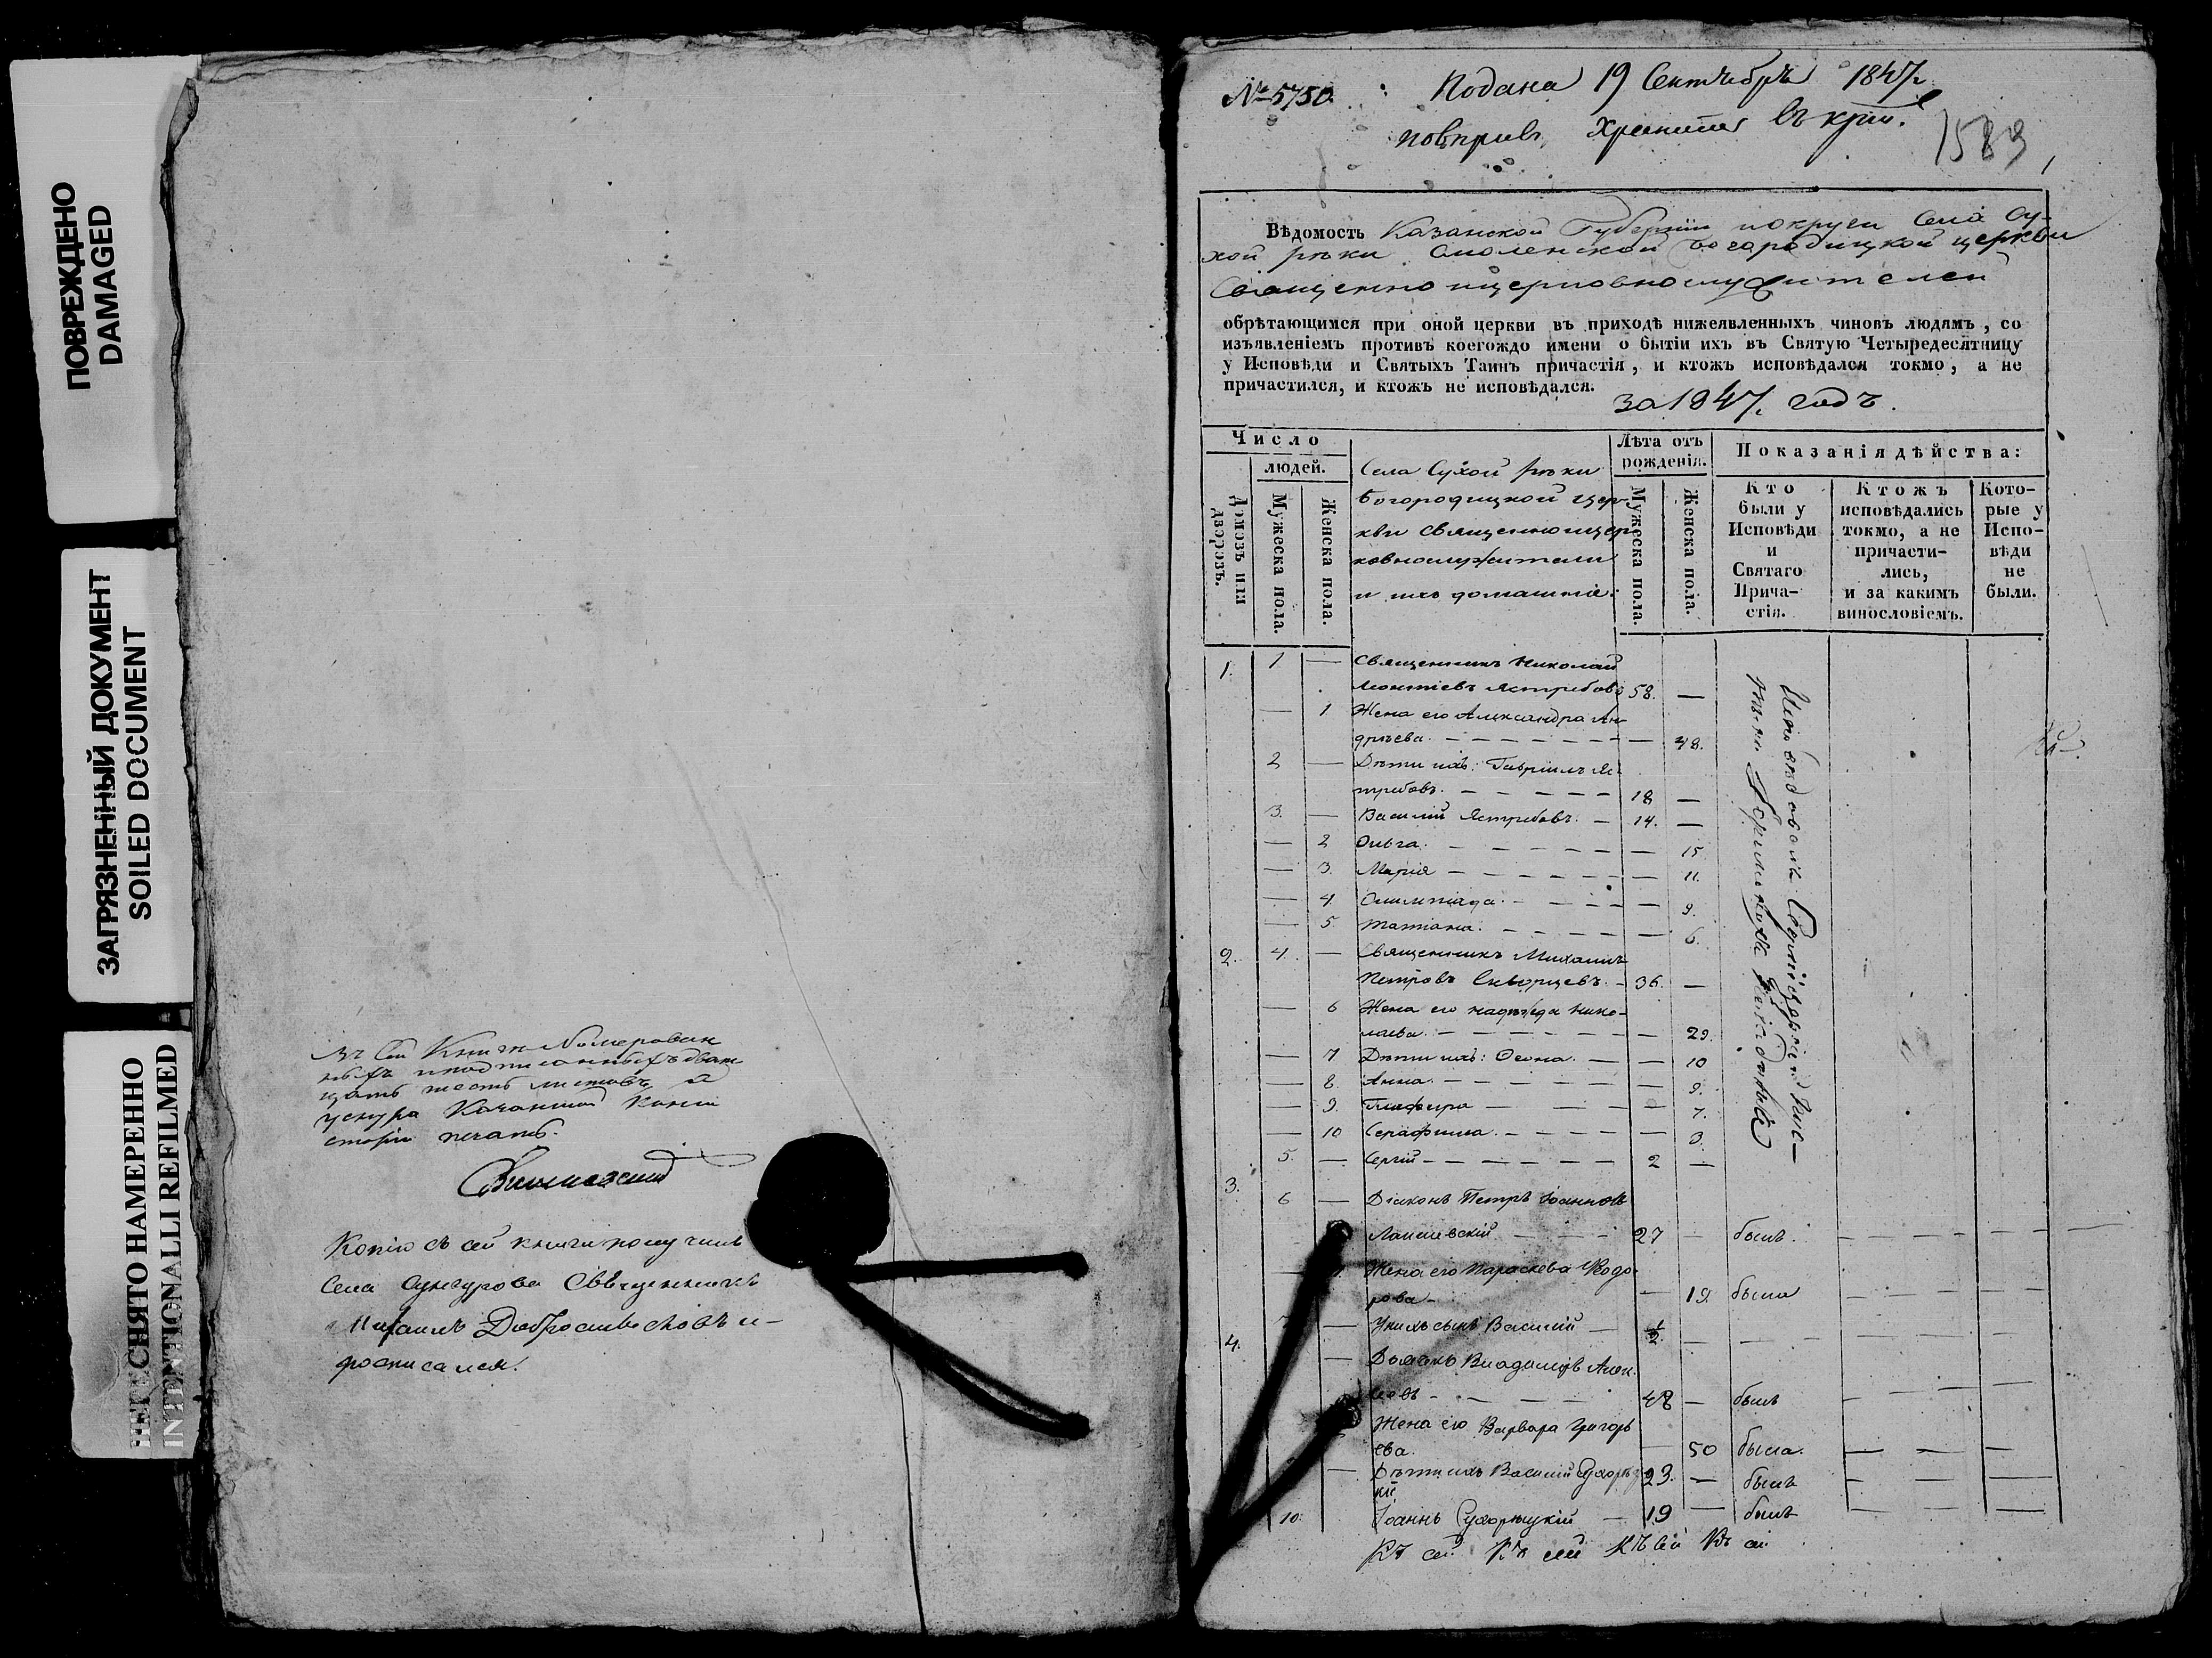 ПОВРЕЖДЕНО
DAMAGED
ЗАГРЯЗНЕННЫЙ ДОКУМЕНТ
SOILED DOCUMENT
ПЕРЕСНЯТО НАМЕРЕННО
INTENTIONALLI REFILMED
въ сей Книге Номерован
ныхъ двад
цать шесть листовъ
Казанской Конси
сторіи печать.
Копію съ сей книги получилъ
Села Сунгурова Священникъ
Михаилъ Добросмысловъ и
росписался.
№ 5750
Подана 19 Сентября 1847г
1589
Вѣдомость Казанской Губерніи округи Села Су-
хой рѣки Смоленской Богородицкой церкви
Священноицерковнослужителей
обрѣтающимся при оной церкви въ приходѣ нижеявленныхъ чиновъ людямъ, со
изъявленіемъ противъ коегождо имени о бытіи ихъ въ Святую Четыредесятницу
у Исповѣди и Святыхъ Таинъ причастія, и ктожъ исповѣдался токмо, а не
причастился, и ктожъ не исповѣдался.
за 1847. годъ.
Число
людей.
Домовъ или дворовъ.
Мужеска пола.
Женска пола.
Села Сухой рѣки
Богородицкой цер-
кви священноицер
ковнослужители
и ихъ домашніе.
Лѣта отъ
рожденія.
Мужеска пола.
Женска пола.
Показанія дѣйства:
Кто
были у
Исповѣди
и
Святаго
Прича-
стія.
Ктожъ
исповѣдались
токмо, а не
причасти-
лись,
и за какимъ
винословіемъ.
Кото-
рые у
Испо-
вѣди
не
были.
1. 1 — Священникъ Николай
Леонтіевъ Ястребовъ 58. —
— 1 Жена его Александра Ан-
дрѣева. — 48.
2 — Дѣти ихъ: Гавріилъ Яс-
требовъ. 18 —
3. — Василій Ястребовъ. — 14. —
— 2 Ольга. — 15
— 3. Марія — 11.
— 4. Олимпіада. — 9.
— 5. Татіана. — 6.
2. 4. — Священникъ Михаилъ
Петровъ Скворцевъ. — 36. —
— 6 Жена его Надежда Нико-
лаева. — 29.
— 7 Дѣти ихъ: Феона. — 10
— 8. Анна. — 9.
— 9. Глафира — 7.
— 10 Серафима. — 3.
5. — Сергій — 2 —
3. 6 — Діаконъ Петръ Іоанновъ
Лаишевскій 27 — былъ.
Жена его Параскева Ѳеодо-
рова — 19 была
У нихъ сынъ Василій — ½
4. — Дьячекъ Владиміръ Алек
48 — былъ
Жена его Варвара Григорь
ева. — 50 была.
Дѣти ихъ Василій Сухорѣц
кій 23. — былъ
10. Іоаннъ Сухорѣцкій — 19 — былъ
Къ сей Къ сей Къ сей Къ сей